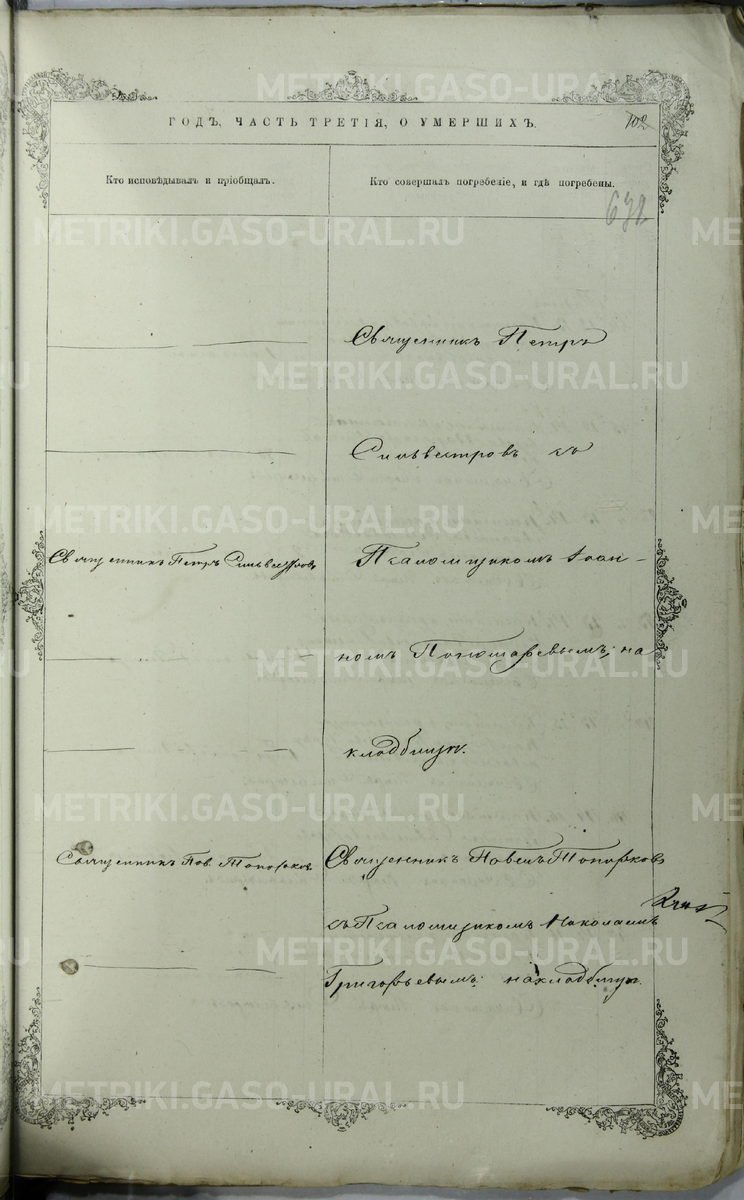 METRIKI.GASO-URAL.RU
ГОДЪ, ЧАСТЬ ТРЕТІЯ, О УМЕРШИХЪ.
102
Кто исповѣдывалъ и пріобщалъ.
Кто совершалъ погребеніе, и гдѣ погребены.
632
Священникъ Петръ
Сильвестровъ съ
Священникъ Петръ Сильвестровъ
Псаломщикомъ Іоан-
номъ Пономаревымъ; на
кладбищѣ.
Священникъ Пав. Топорковъ
Священникъ Павелъ Топорковъ
съ Псаломщикомъ Николаемъ
Григорьевымъ: на кладбищѣ.